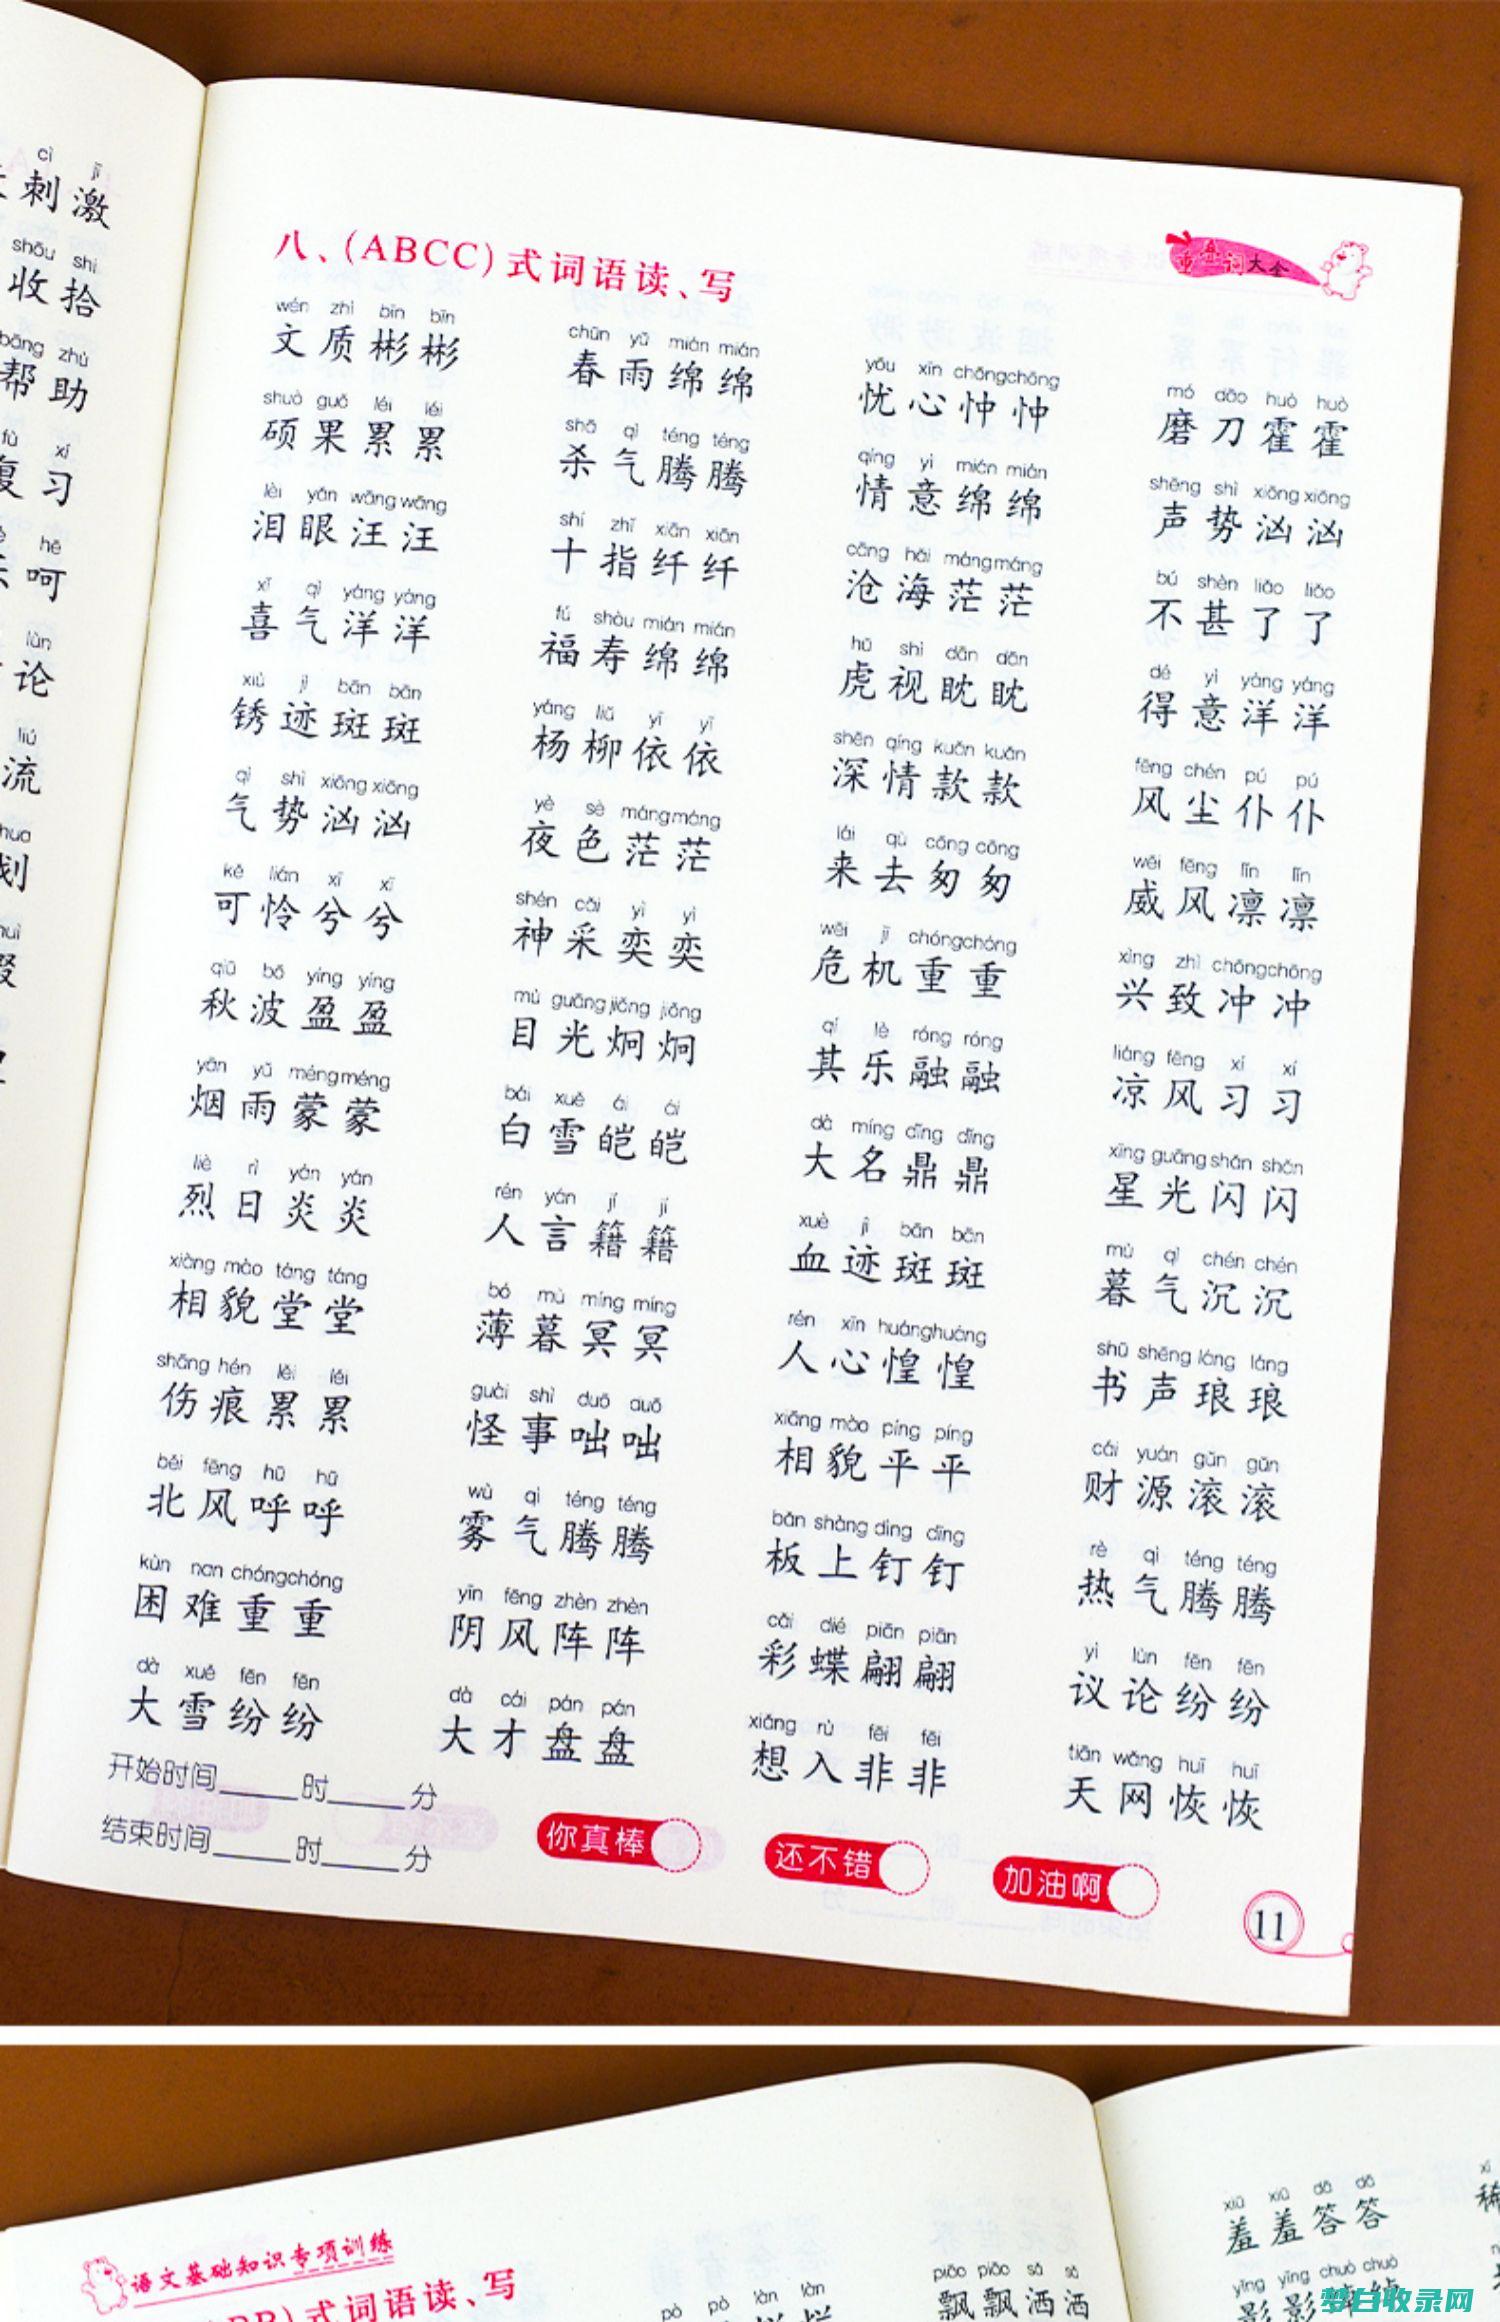 刺激
收拾
帮助
习
呵
论
流
重叠词大全
八、(ABCC)式词语读、写
wén zhì bīn bīn
文质彬彬
shuò guǒ léi léi
硕果累累
lèi yǎn wāng wāng
泪眼汪汪
xǐ qì yáng yáng
喜气洋洋
xiù jì bān bān
锈迹斑斑
qì shì xiōng xiōng
气势汹汹
kě lián xī xī
可怜兮兮
qiū bō yíng yíng
秋波盈盈
yān yǔ méng méng
烟雨蒙蒙
liè rì yán yán
烈日炎炎
xiàng mào táng táng
相貌堂堂
shāng hén lěi lěi
伤痕累累
běi fēng hū hū
北风呼呼
kùn nan chóng chóng
困难重重
dà xuě fēn fēn
大雪纷纷
chūn yǔ mián mián
春雨绵绵
shā qì téng téng
杀气腾腾
shí zhǐ xiān xiān
十指纤纤
fú shòu mián mián
福寿绵绵
yáng liǔ yī yī
杨柳依依
yè sè máng máng
夜色茫茫
shén cǎi yì yì
神采奕奕
mù guāng jiǒng jiǒng
目光炯炯
bái xuě ái ái
白雪皑皑
rén yán jí jí
人言籍籍
bó mù míng míng
薄暮冥冥
guài shì duō duō
怪事咄咄
wù qì téng téng
雾气腾腾
yīn fēng zhèn zhèn
阴风阵阵
dà cái pán pán
大才盘盘
yōu xīn chōng chōng
忧心忡忡
qíng yì mián mián
情意绵绵
cāng hǎi máng máng
沧海茫茫
hǔ shì dān dān
虎视眈眈
shēn qíng kuǎn kuǎn
深情款款
lái qù cōng cōng
来去匆匆
wēi jī chóng chóng
危机重重
qí lè róng róng
其乐融融
dà míng dǐng dǐng
大名鼎鼎
xuè jì bān bān
血迹斑斑
rén xīn huáng huáng
人心惶惶
xiàng mào píng píng
相貌平平
bǎn shàng dìng dīng
板上钉钉
cǎi dié piān piān
彩蝶翩翩
xiǎng rù fēi fēi
想入非非
mó dāo huò huò
磨刀霍霍
shēng shì xiōng xiōng
声势汹汹
bú shèn liǎo liǎo
不甚了了
dé yì yáng yáng
得意洋洋
fēng chén pú pú
风尘仆仆
wēi fēng lǐn lǐn
威风凛凛
xìng zhì chōng chōng
兴致冲冲
liáng fēng xí xí
凉风习习
xīng guāng shǎn shǎn
星光闪闪
mù qì chén chén
暮气沉沉
shū shēng láng láng
书声琅琅
cái yuán gǔn gǔn
财源滚滚
rè qì téng téng
热气腾腾
yì lùn fēn fēn
议论纷纷
tiān wǎng huī huī
天网恢恢
开始时间____时____分
结束时间____时____分
你真棒
还不错
加油啊
11
语文基础知识专项训练
式词语读、写
piāo piāo sǎ sǎ
飘飘洒洒
xiū xiū dā dā
羞羞答答
yǐng yǐng chuò chuò
梦白收录网